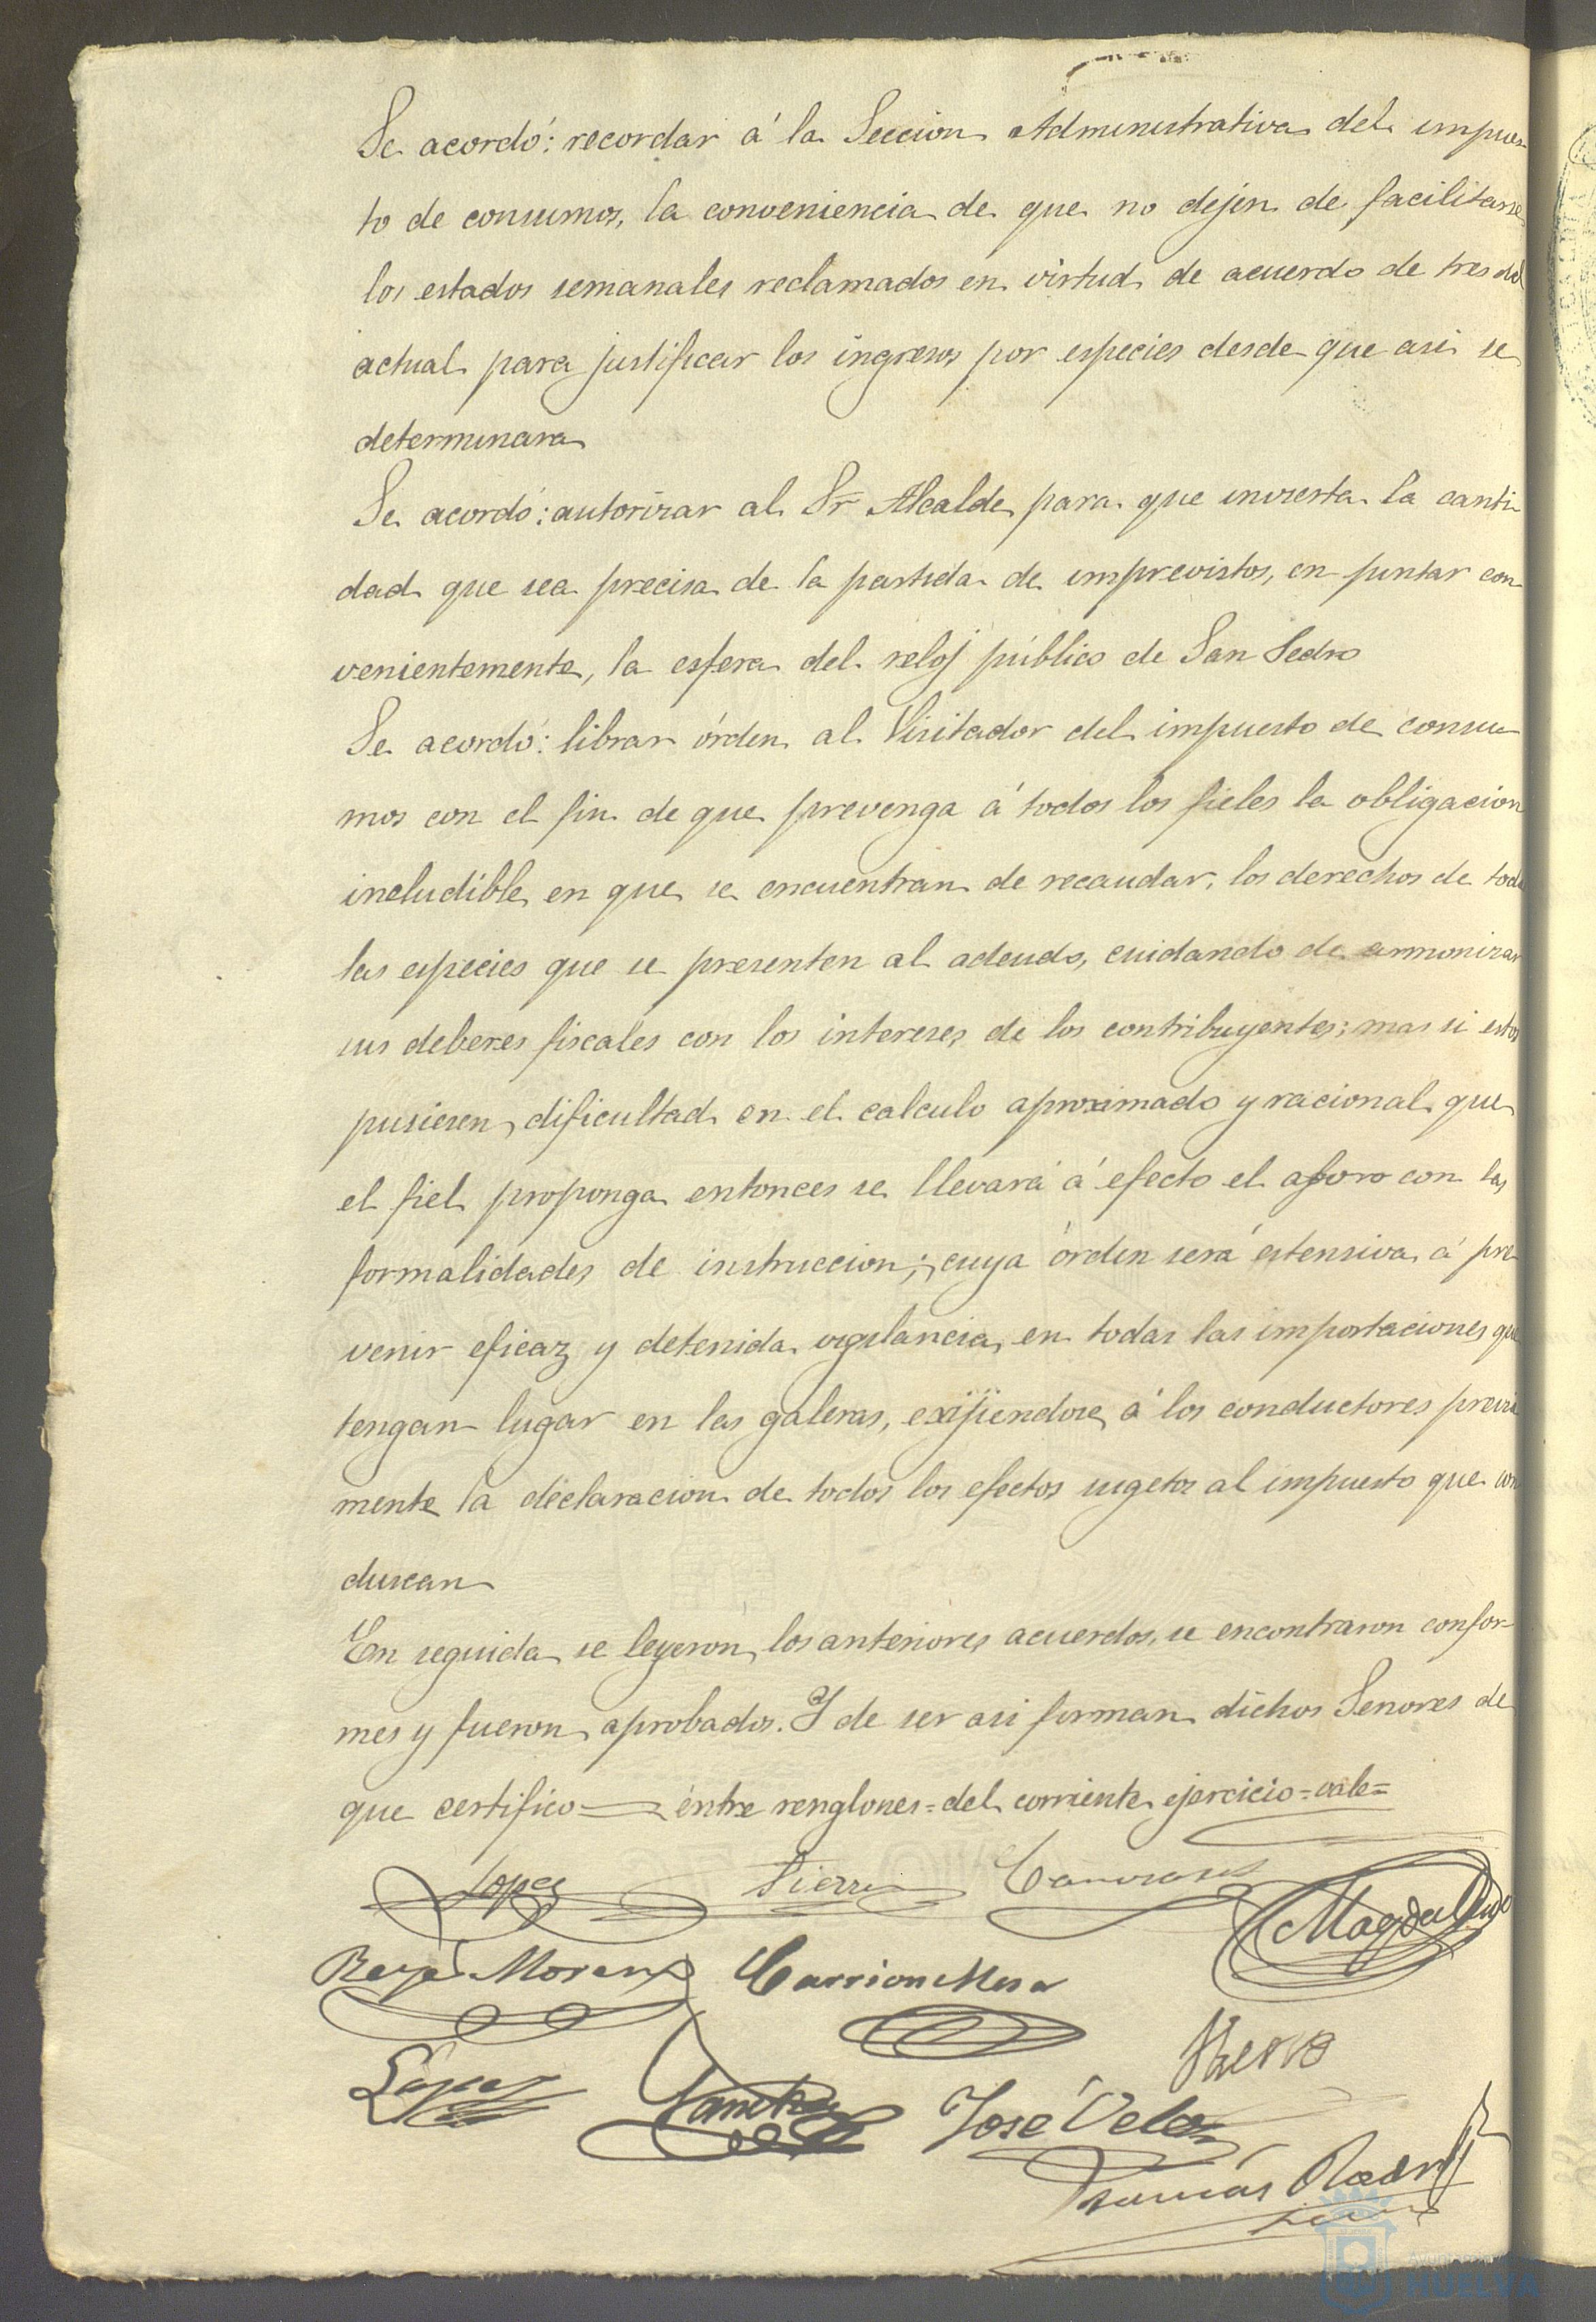 Se acordó: recordar á la Seccion Administrativa del impues-
to de consumos, la conveniencia de que no dejen de facilitarse
los estados semanales reclamados en virtud de acuerdo de tres del
actual para justificar los ingresos por especies desde que asi se
determinara
Se acordó: autorizar al Sr Alcalde para que invierta la canti
dad que sea precisa de la partida de imprevistos, en pintar con
venientemente, la esfera del reloj público de San Pedro
Se acordó: librar órden al Visitador del impuesto de consu
mos con el fin de que prevenga á todos los fieles la obligacion
ineludible en que se encuentran de recaudar, los derechos de todas
las especies que se presenten al adeudo, cuidando de armonizar
sus deberes fiscales con los intereses de los contribuyentes; mas si estos
pusiesen dificultad en el calculo aproximado y racional que
el fiel proponga entonces se llevará á efecto el aforo con las
formalidades de instruccion; cuya órden será estensiva á pre
venir eficaz y detenida vigilancia en todas las importaciones que
tengan lugar en las galeras, exijiendose á los conductores previa
mente la declaracion de todos los efectos sugetos al impuesto que con
duscan
En seguida se leyeron los anteriores acuerdos, se encontraron confor-
mes y fueron aprobados. Y de ser asi firman dichos Señores de
que certifico = entre renglones = del corriente ejercicio = vale =
Lopez Sierra Canovas Magdaleno
Moreno Carrion Mesa
López Sanchez José Velez
Tomás Rodrig
HUELVA